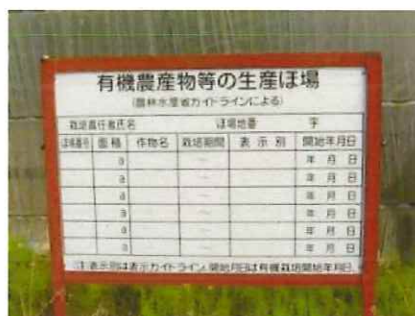 有機農産物等の生産ほ場
(農林水産省ガイドラインによる)
栽培責任者氏名 ほ場地番 字
ほ場番号 面積 作物名 栽培期間 表示別 開始年月日
a ～ 年 月 日
a ～ 年 月 日
a ～ 年 月 日
a ～ 年 月 日
a ～ 年 月 日
注 表示別は表示ガイドライン、開始月日は有機栽培開始年月日。